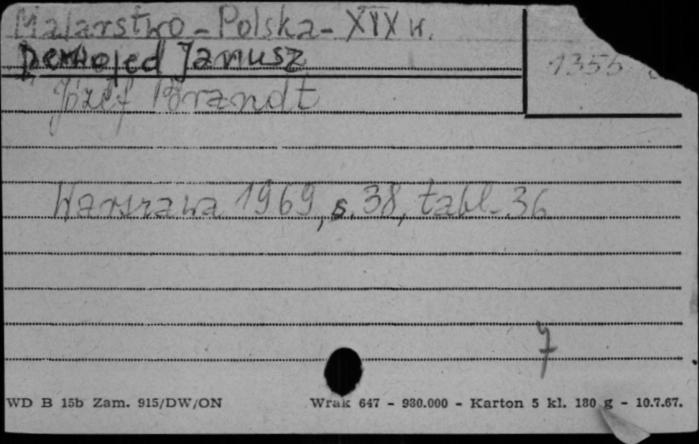 Malarstwo - Polska - XIX w.
Derwojed Janusz
1355
Józef Brandt
Warszawa 1969, s. 38, tabl. 36
7
WD B 15b Zam. 915/DW/ON Wrak 647 - 930.000 - Karton 5 kl. 180 g - 10.7.67.